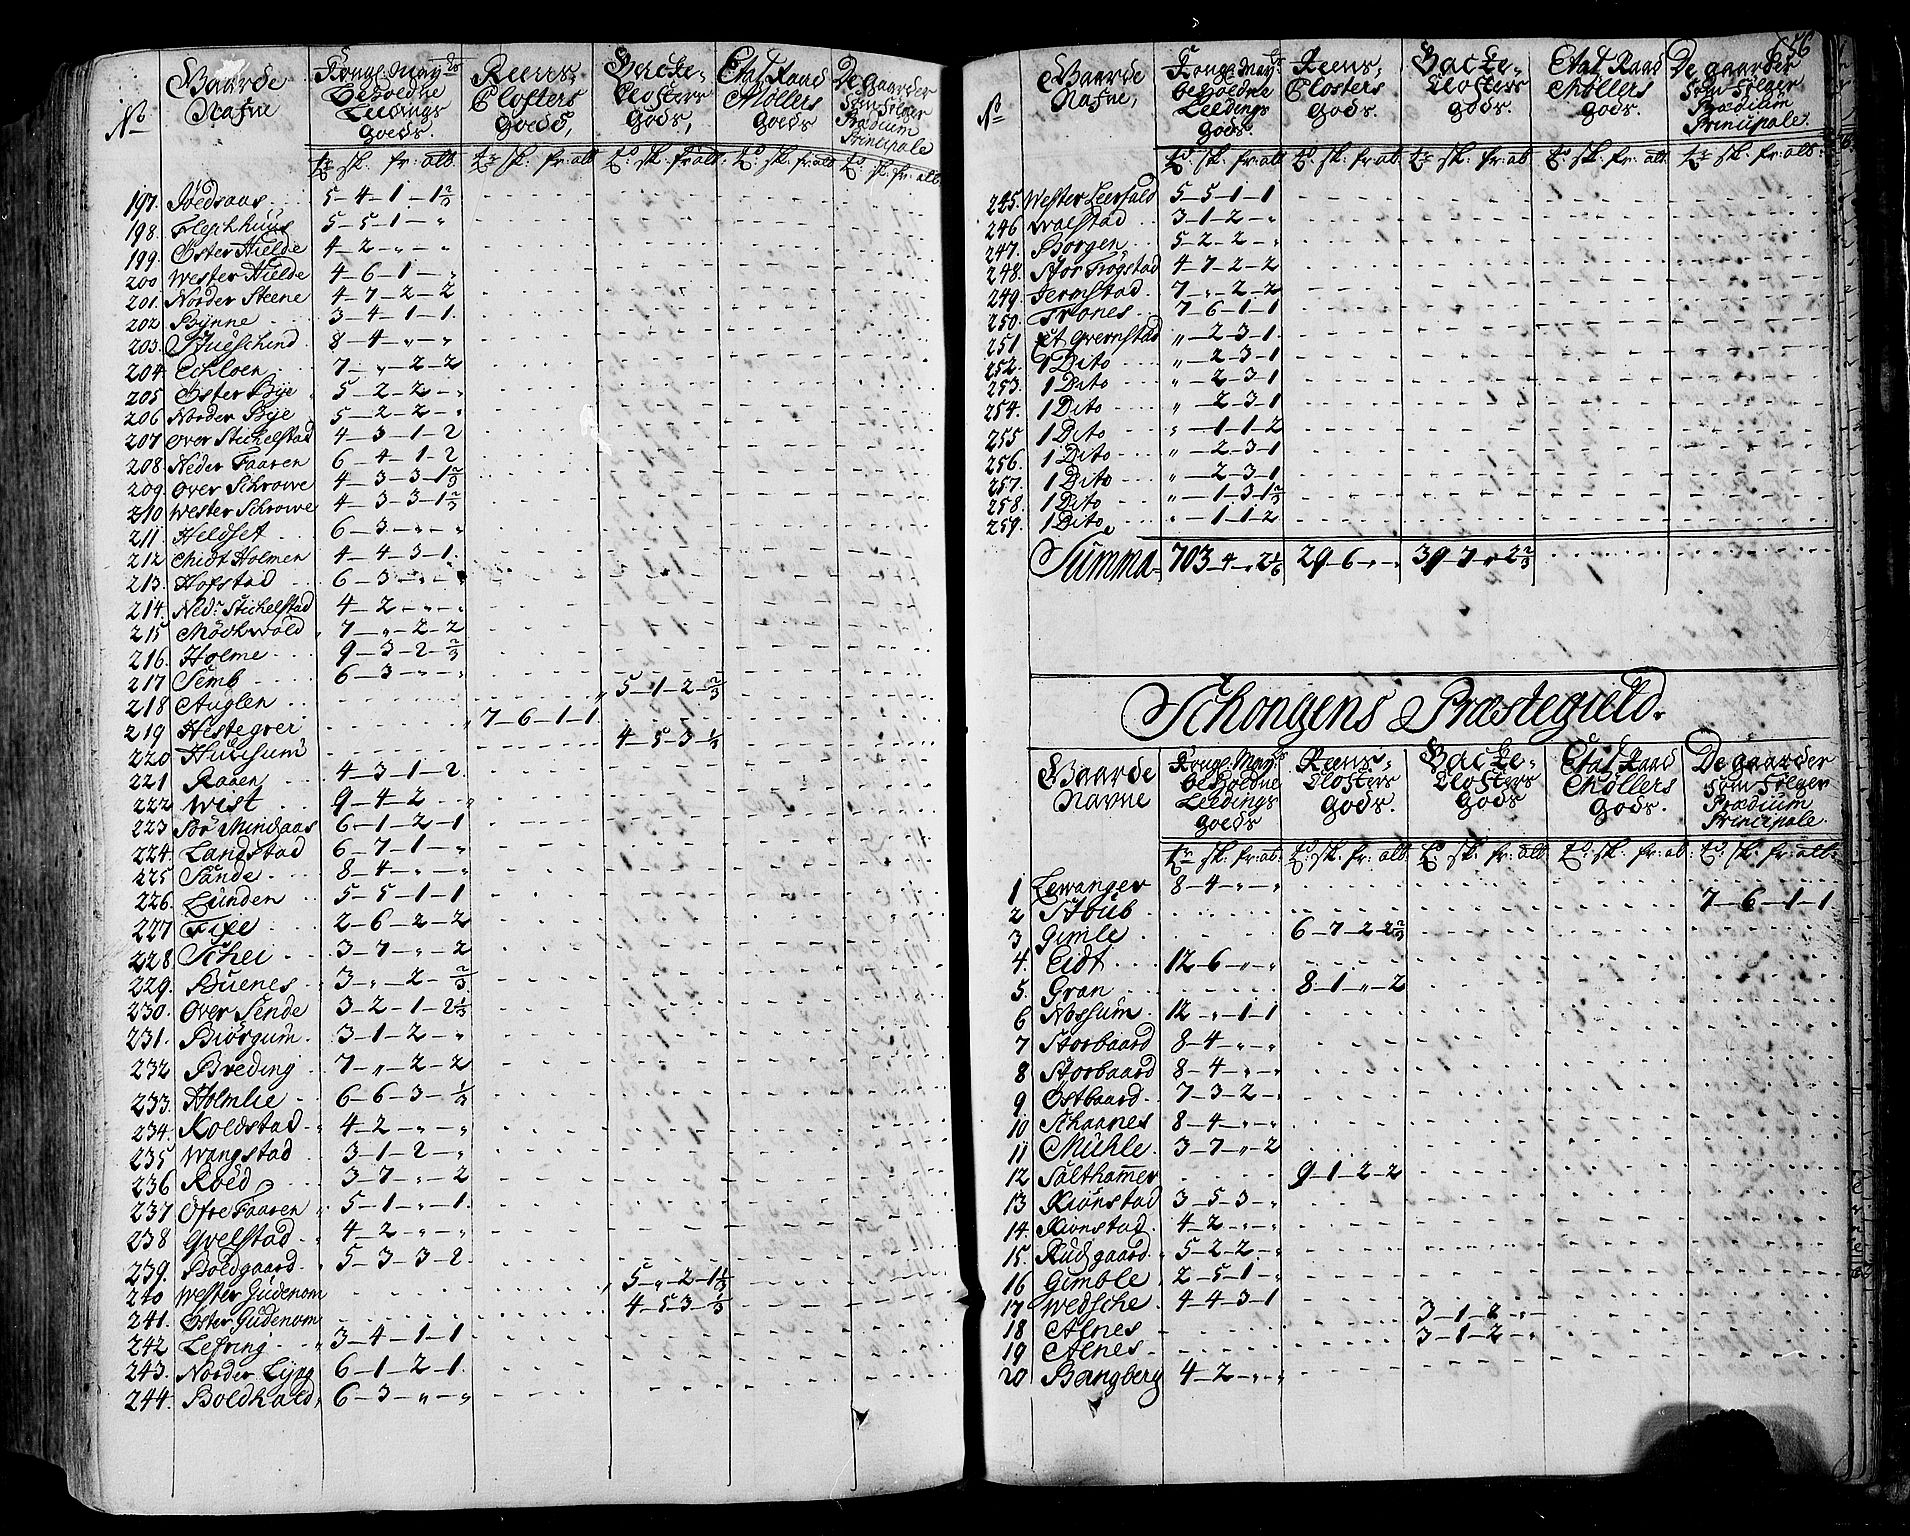 No
Gaarde Nafne
Kongl. May: Beholdne Leedings Goeds.
Reens Closters Goeds,
Backe Closters Gods,
Etat Raad Möllers Goeds
De gaarder som følger Prædium Principale
197. 5-4-1-1 2/3
198. Fleskhuus 5-5-1-"
199. Øster Hielde 4-2-"-"
200 Wester Hielde 4-6-1-"
201. Norder Steene 4-7-2-2
202 Bynne 3-4-1-1.
203. 8-4-"-"
204. Eckloen 7-"-2-2
205 Øster Bye 5-2-2-"
206 Norder Bye 5-2-2-"
207 Over Stichelstad 4-3-1-2
208. Neder Faaren 6-4-1-2
209. Over Schrowe 4-3-3-1 2/3
210 Wester Schrowe 4-3-3-1 2/3
211. Heldset 6-3-"-"
212 Chidt Holmen 4-4-3-1.
213. Hofstad 6-3-"-"
214. Nedr Stichelstad 4-2-"-"
215 Möckwold 7-"-2-2
216. Holme 9-3-2-2/3
217 Semb 6-3-"-"
218 Auglen 5-1-2-2/3
219 Hestegrei 7-6-1-1
220 Hussum 4-5-3-1/3
221 Raaen 4-3-1-2
222 West 9-4-2-"
223 Bö Mindaas 6-1-2-1
224. Landstad 6-7-1-"
225 Sande 8-4-"-"
226. Lunden 5-5-1-1
227 Fixe 2-6-2-2
228 Schei 3-7-"-2
229. Buenes 3-"-2-2/3
230. Over Sende 3-2-1-2 1/3
231. Biörgum 3-1-2-"
232 Breding 7-"-2-2
233. Holmlie 6-6-3-1/3
234. Koldstad 4-2-"-"
235 Wangstad 3-1-2-"
236 Roed 3-7-"-2
237 Öfre Faaren 5-1-"-1.
238 Qvelstad 4-2-"-"
239. Boldgaard 5-3-3-2
240 Wester Gudenom 5-"-2-1 1/3
241. Øster Gudenom 4-5-3-1/3
242 Lefring 3-4-1-1
243. Norder Lyng 6-1-2-1.
244. Boldhald 6-3-"-"
656
No
Gaarde Nafne,
Kongl. May: beholdne Leedings Gods.
Reens Closters Gods.
Backe Closters gods.
Etat Raad Möllers gods.
De gaarder som følger Prædium Principale
245. Wester Leerfald 5-5-1-1
246 Walstad 3-1-2-"
247. Borgen 5-2-2-"
248. Stor Trogstad 4-7-2-2
249. Jermstad 7-"-2-2
250. Trones 7-6-1-1
251 Et Qvernstad "-2-3-1
252. 1 Dito "-2-3-1
253. 1 Dito "-2-3-1
254. 1 Dito "-2-3-1
255 1 Dito "-1-1-2
256. 1 Dito "-2-3-1
257. 1 Dito "-2-3-1
258. 1 Dito "-1-3-1 2/3
259. 1 Dito "-1-1-2
Summa 703-4-"-2 1/6 29-6-"-" 39-7-"-2 2/3
Schongens Præstegield.
Gaarde Navne
Kongl. May: beholdne Leedings Goeds
Reens Closters Gods.
Backe Closters Gods
Etat Raad Möllers Gods.
De gaarder som følger Prædium Principale
1 Lewanger 8-4-"-"
2 Stbub 7-6-1-1
3 Gimle 6-7-2-2 2/3
4. Eidt 12-6-"-"
5. Gran 8-1-"-2
6 Nossum 12-"-1-1
7 Storbaard 8-4-"-"
8 Storbaard 8-4-"-"
9 Ostbaard 7-3-2-"
10 Schaanes 8-4-"-"
11 Mühle 3-7-"-2
12 Salthammer 9-1-2-2
13 Kiönstad 3-5-3-"
14. Kionstad 4-2-"-"
15. Rudgaard 5-2-2-"
16 Gimble 2-5-1-"
17 Wedsche 4-4-3-1
18 Alnes 3-1-2-"
19 Alnes 3-1-2-"
20 Bangberg 4-2-"-"